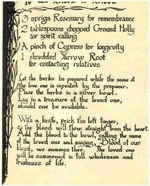 3 sprigs Rosemary for remembrance
2 tablespoons chopped Ground Holly
for spirit calling
A pinch of Cypress for longevity
1 shredded Yarrow Root
for contacting relatives
Let the herbs be prepared while the name of
the loved one is repeated by the preparer.
Place the herbs in a silver bowl.
Lay in a treasure of the loved one,
should one be available.
With a knife, prick the left finger,
so the blood will flow straight from the heart.
Add the blood to the bowl, calling the name
of the loved one and saying, "Blood of our
blood, we summon thee." The loved one
will be summoned in full wholeness and
freshness of life.